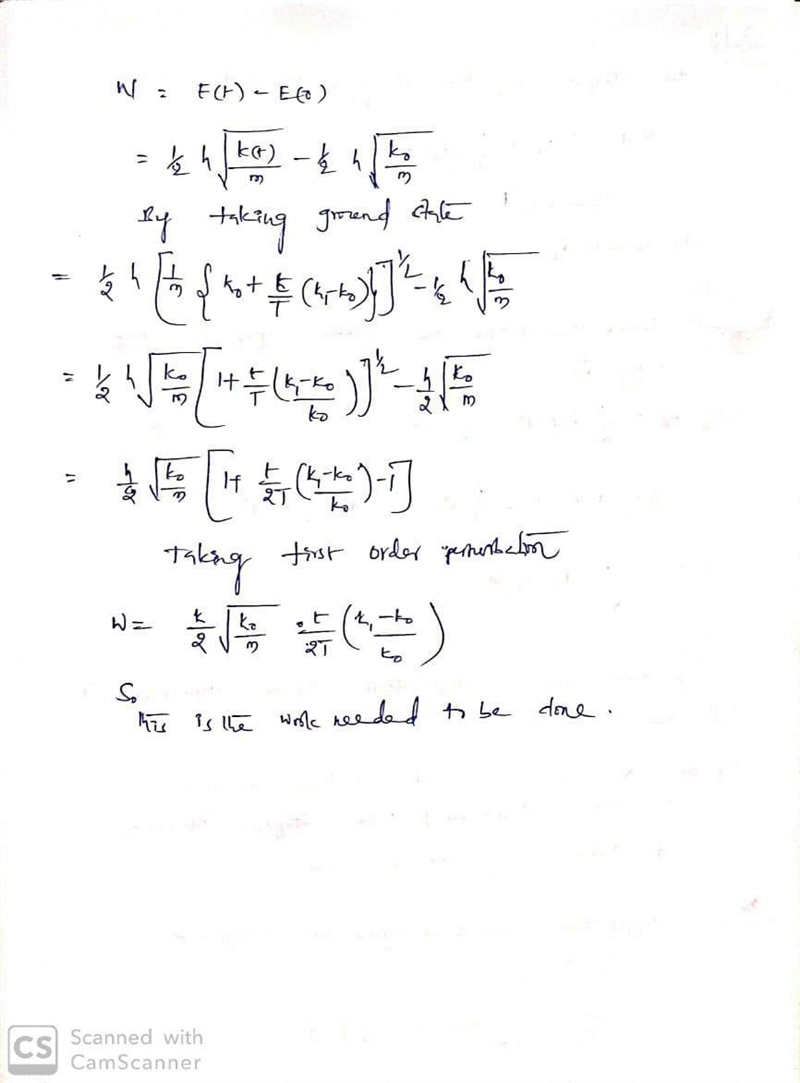 W = E(t) - E(0)
= 1/2 ħ √(k(t)/m) - 1/2 ħ √(k₀/m)
By taking ground state
= 1/2 ħ [1/m {k₀ + t/T (k₁-k₀)}]^1/2 - 1/2 ħ √(k₀/m)
= 1/2 ħ √(k₀/m) [1 + t/T ((k₁-k₀)/k₀)]^1/2 - ħ/2 √(k₀/m)
= ħ/2 √(k₀/m) [1 + t/2T ((k₁-k₀)/k₀) - 1]
taking first order perturbation
W = ħ/2 √(k₀/m) . t/2T ((k₁-k₀)/k₀)
So
this is the work needed to be done.
CS Scanned with
CamScanner